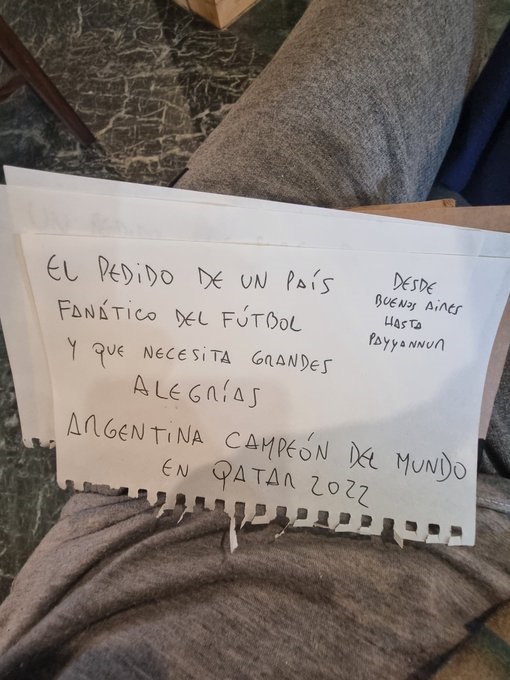 EL PEDIDO DE UN PAÍS
FANÁTICO DEL FÚTBOL
Y QUE NECESITA GRANDES
ALEGRÍAS
ARGENTINA CAMPEÓN DEL MUNDO
EN QATAR 2022
DESDE
BUENOS AIRES
HASTA
PAYYANNUR